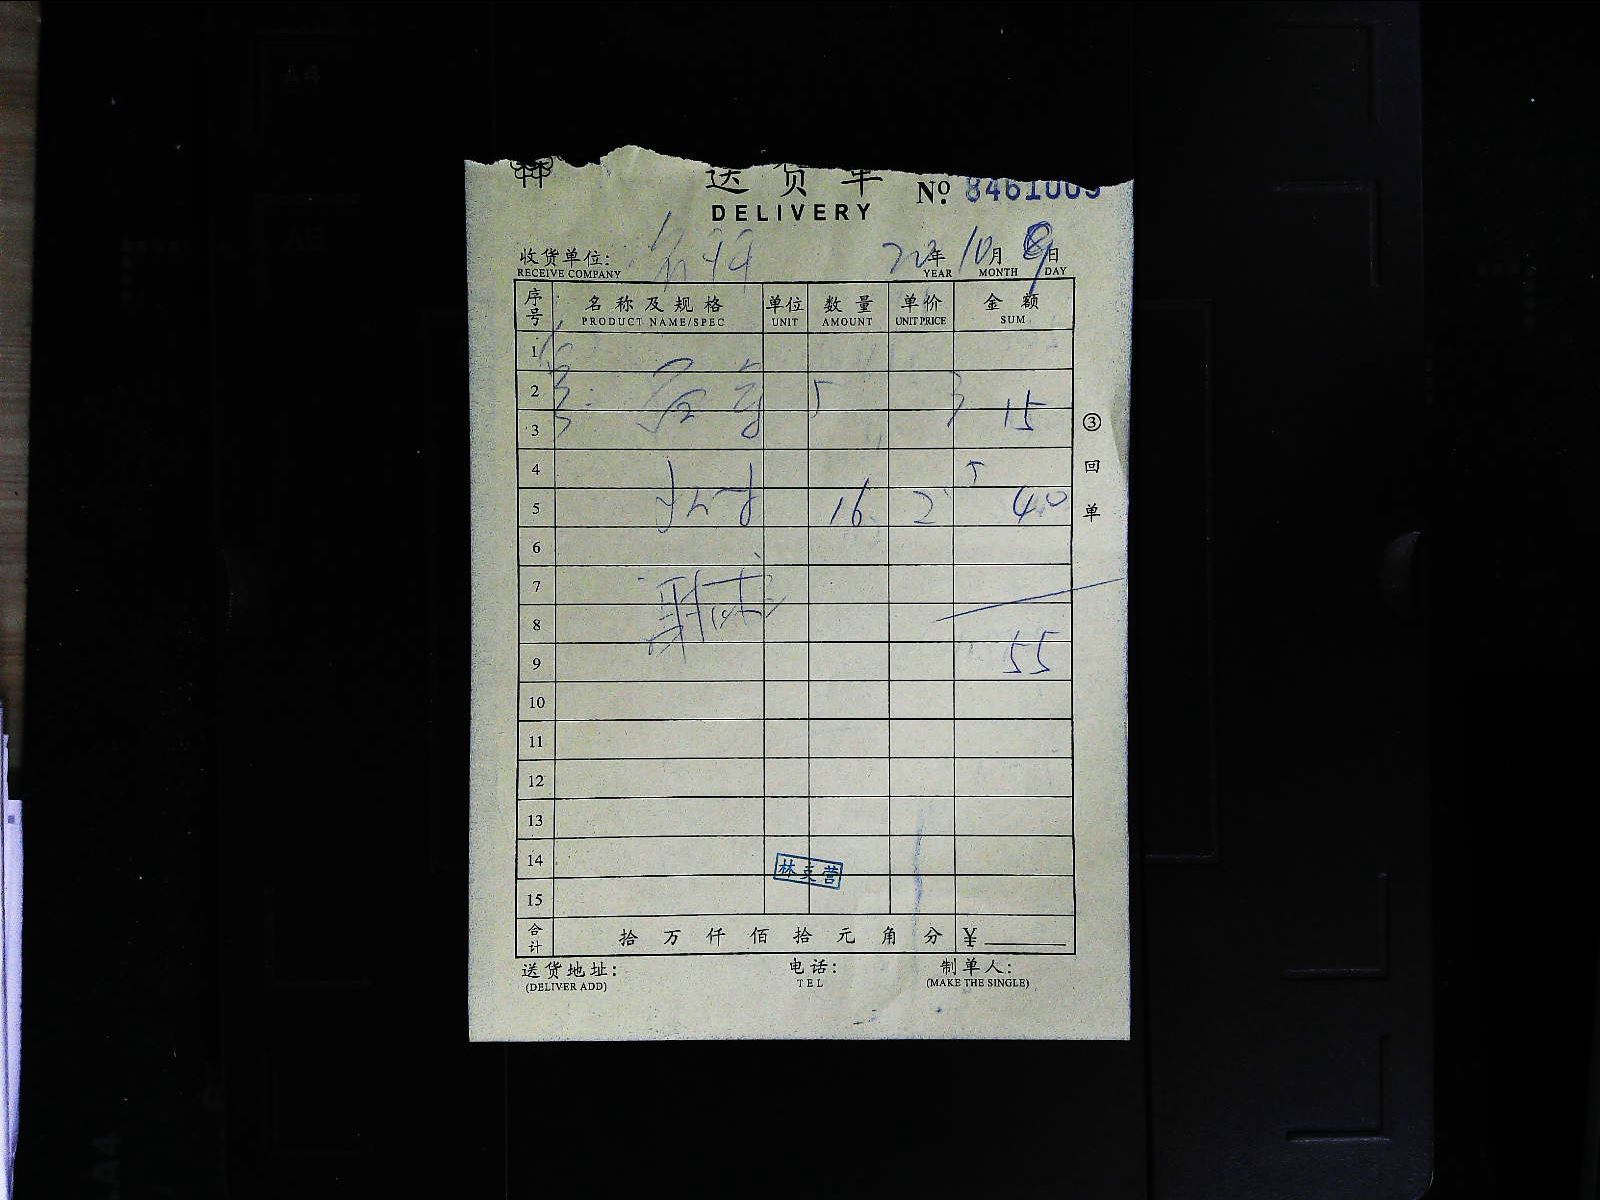 送货单
DELIVERY
№ 8461005
收货单位:
RECEIVE COMPANY
22年 10月 9日
YEAR MONTH DAY
序号 名称及规格 单位 数量 单价 金额
PRODUCT NAME/SPEC UNIT AMOUNT UNIT PRICE SUM
1
2 5 3 15
3
4
5 16 2.5 40
6
7
8
9 55
10
11
12
13
14
15
林克营
合计 拾 万 仟 佰 拾 元 角 分 ¥
送货地址: 电话: 制单人:
(DELIVER ADD) TEL (MAKE THE SINGLE)
③回单
A4